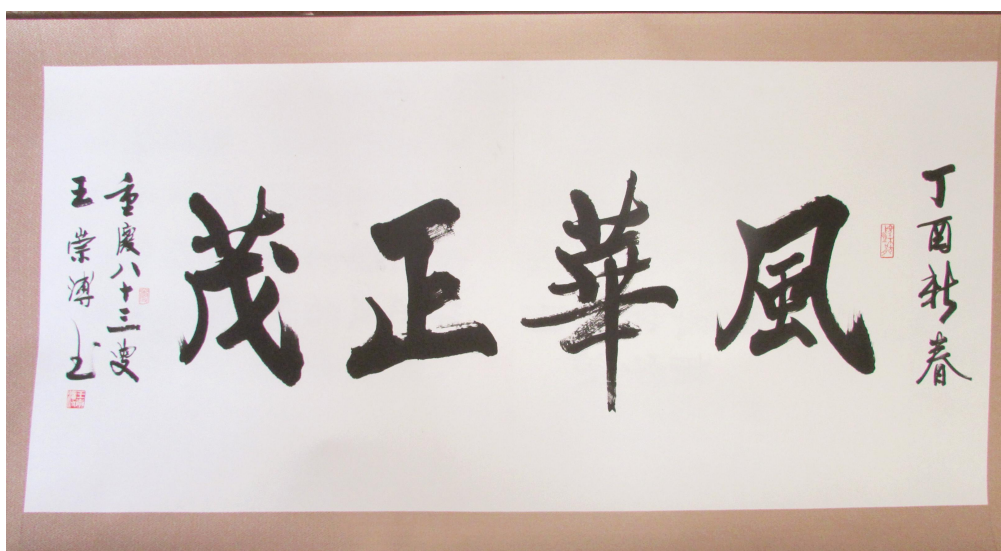 丁酉新春
風華正茂
重慶八十三叟
王崇溥書